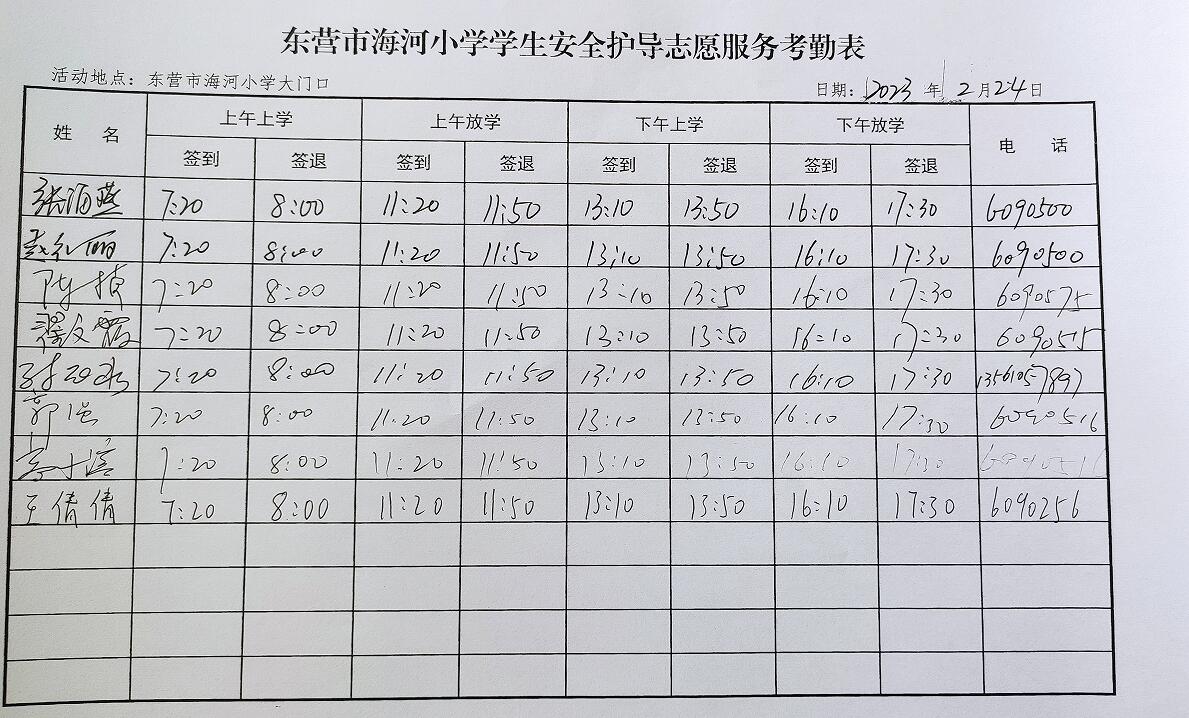 东营市海河小学学生安全护导志愿服务考勤表
活动地点：东营市海河小学大门口 日期：2023年2月24日
姓 名 上午上学 上午放学 下午上学 下午放学 电 话
签到 签退 签到 签退 签到 签退 签到 签退
张海燕 7:20 8:00 11:20 11:50 13:10 13:50 16:10 17:30 6090500
7:20 8:00 11:20 11:50 13:10 13:50 16:10 17:30 6090500
7:20 8:00 11:20 11:50 13:10 13:50 16:10 17:30 6090575
7:20 8:00 11:20 11:50 13:10 13:50 16:10 17:30 6090515
7:20 8:00 11:20 11:50 13:10 13:50 16:10 17:30 13561057897
郭强 7:20 8:00 11:20 11:50 13:10 13:50 16:10 17:30 6090516
7:20 8:00 11:20 11:50 13:10 13:50 16:10 17:30 6090516
王倩倩 7:20 8:00 11:20 11:50 13:10 13:50 16:10 17:30 6090256